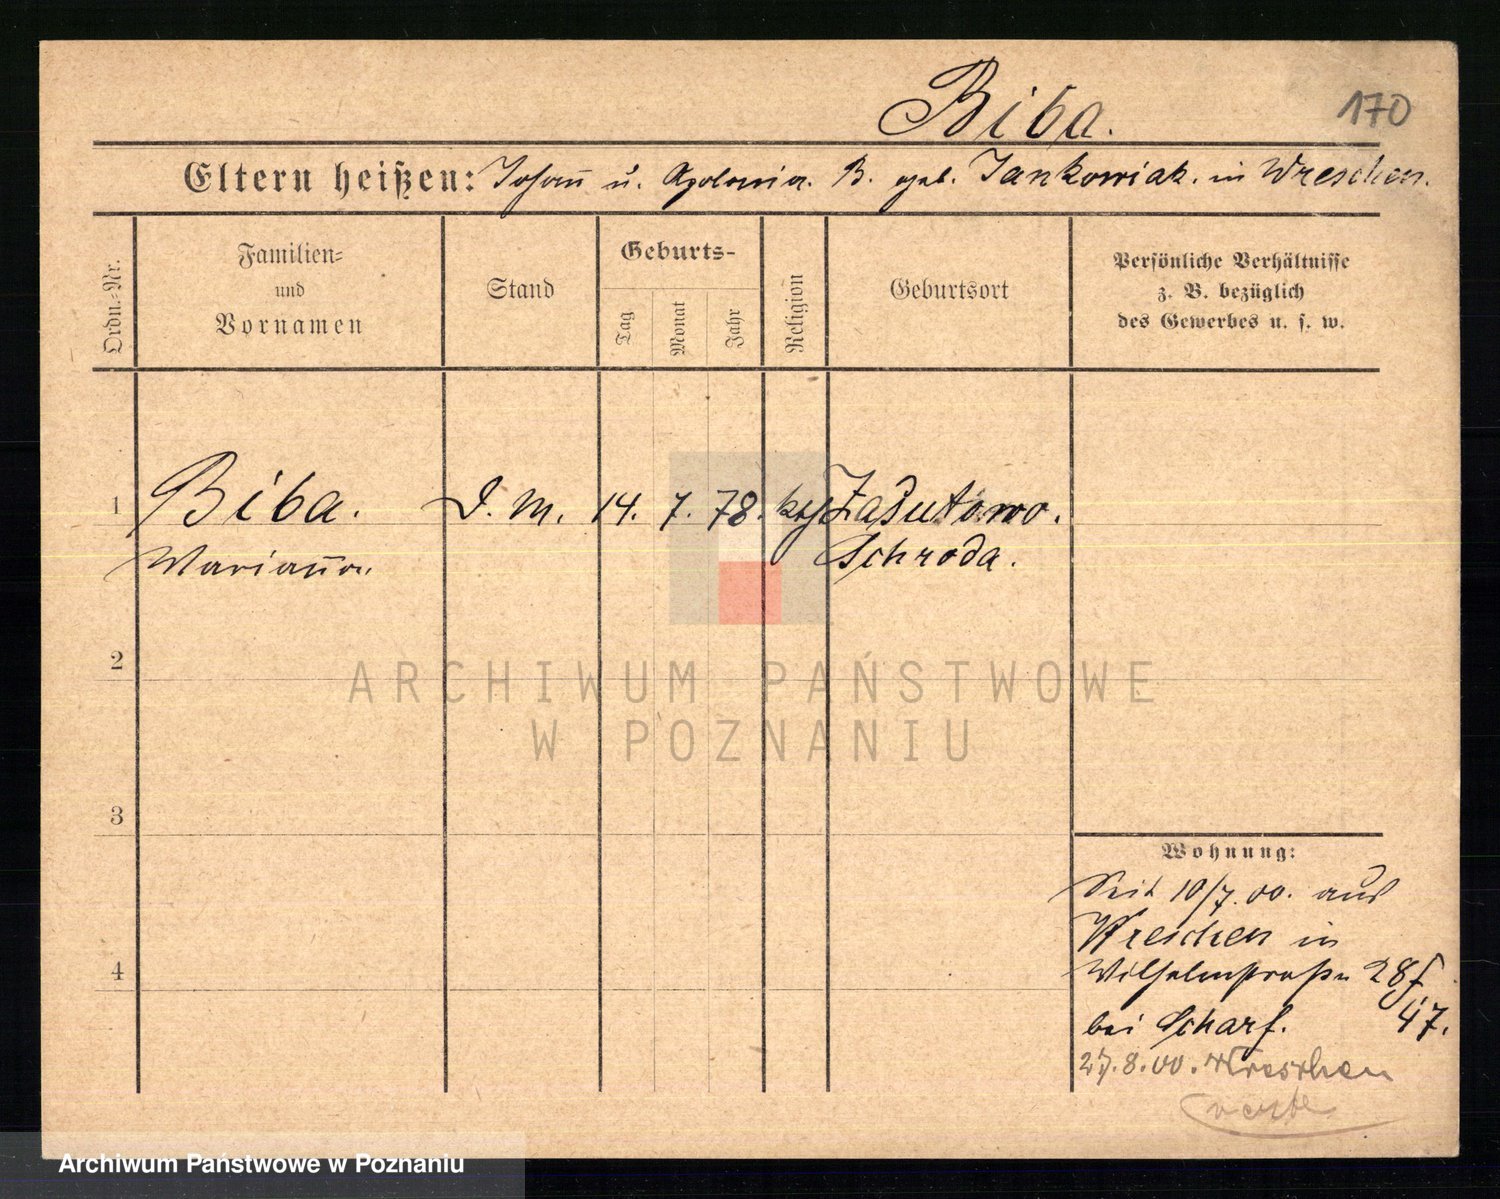 Biba.
170
Eltern heißen: Johann u. Apolonia B. geb. Jankowiak. in Wreschen.
Ordn.-Nr.
Familien-
und
Vornamen
Stand
Geburts-
Tag
Monat
Jahr
Religion
Geburtsort
Persönliche Verhältnisse
z. B. bezüglich
des Gewerbes u. s. w.
1 Biba. D. M. 14. 7. 78. kth Zasutowo.
Marianna Schroda.
2
ARCHIWUM PAŃSTWOWE
W POZNANIU
3
Wohnung:
Seit 10/7. 00. aus
Wreschen in
4
Wilhelmstraße 28
bei Scharf. 47.
27.8.00. Wreschen
Archiwum Państwowe w Poznaniu